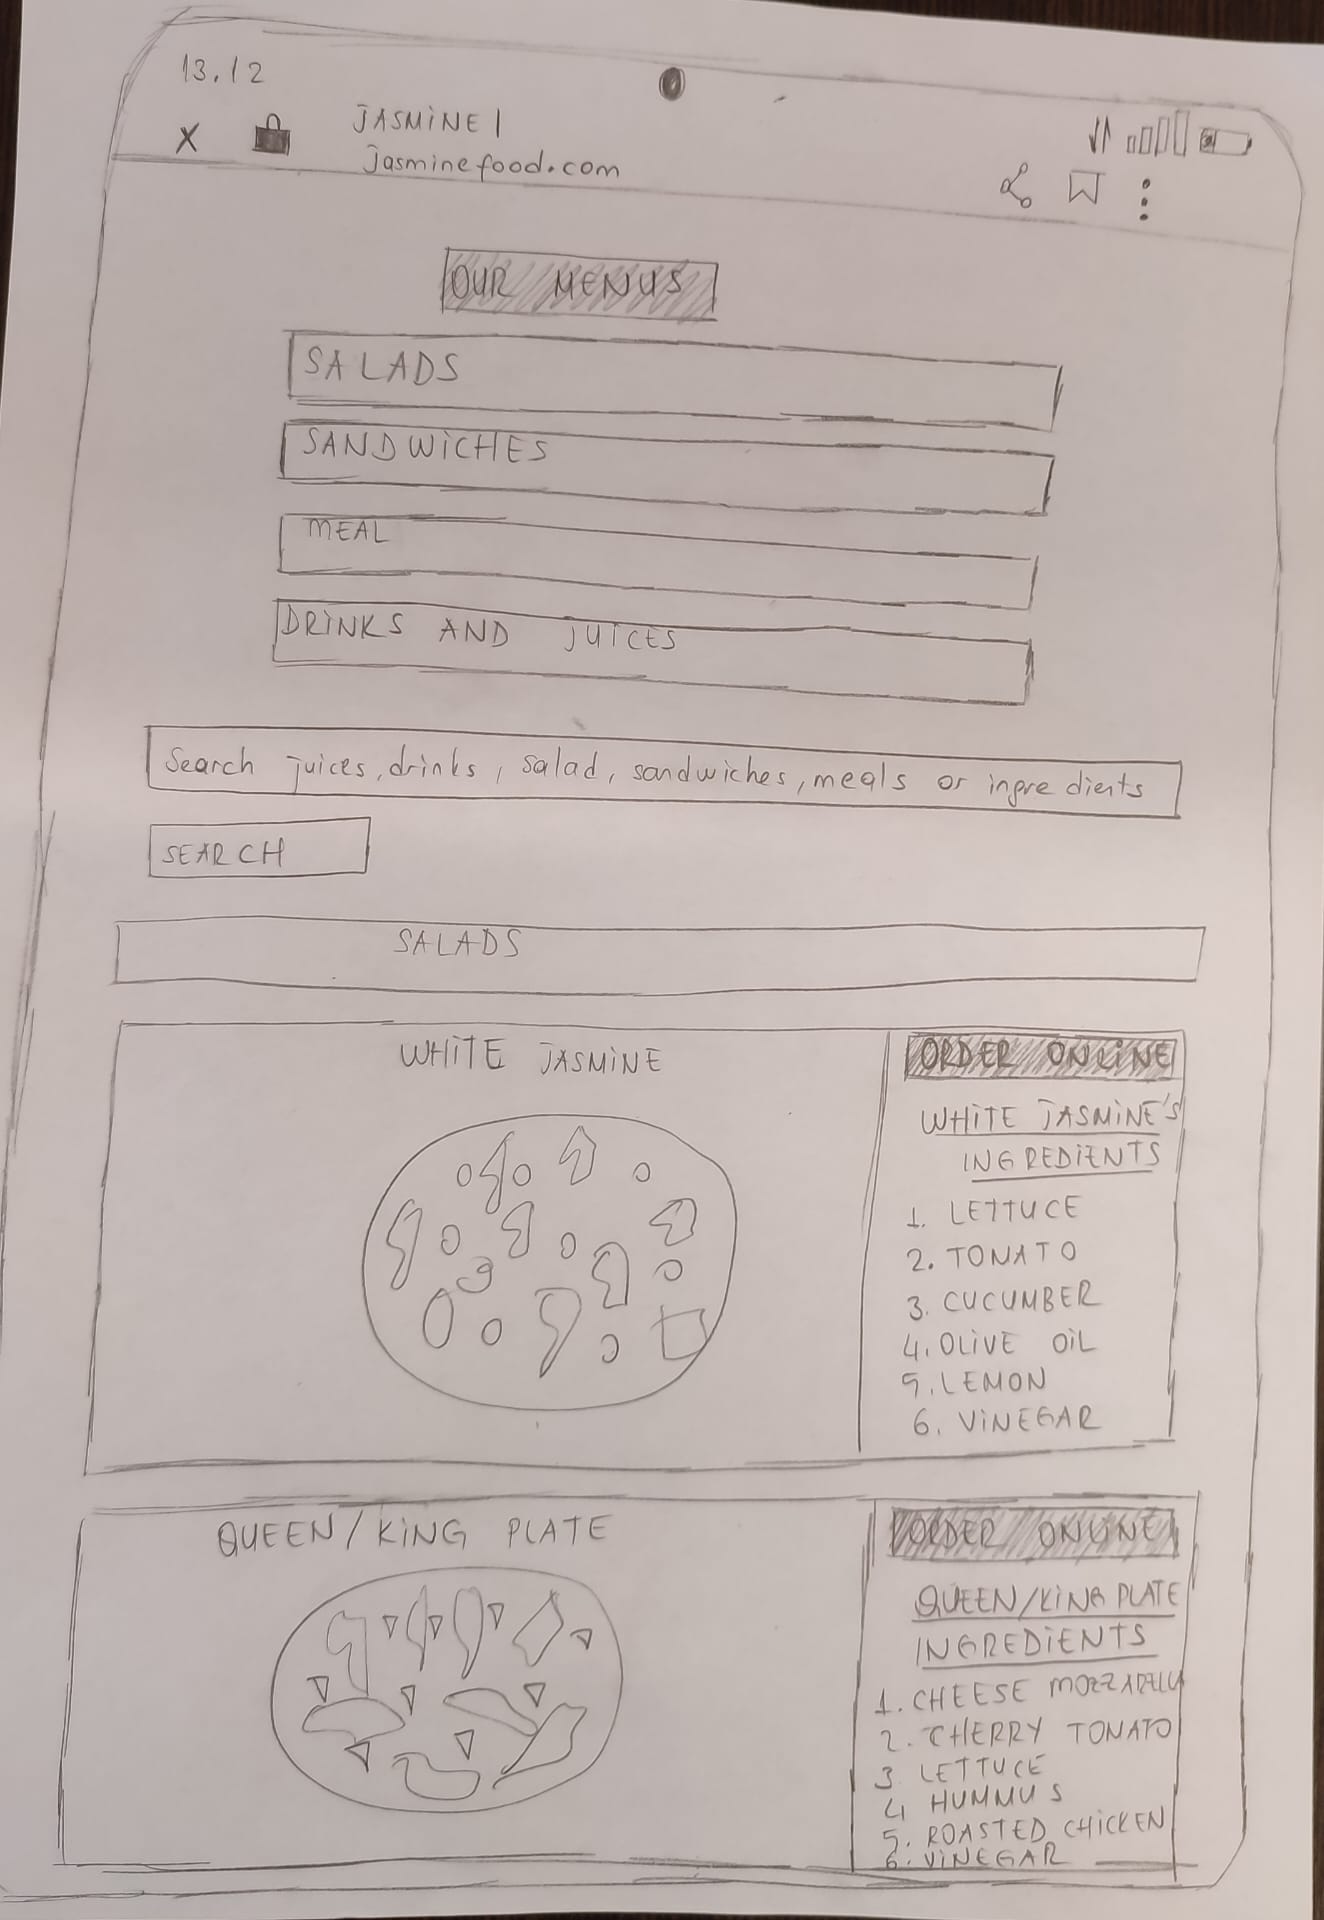 13.12
X
JASMINE |
Jasminefood.com
OUR MENUS
SALADS
SANDWICHES
MEAL
DRINKS AND JUICES
Search juices, drinks, salad, sandwiches, meals or ingredients
SEARCH
SALADS
WHITE JASMINE
ORDER ONLINE
WHITE JASMINE'S
INGREDIENTS
1. LETTUCE
2. TONATO
3. CUCUMBER
4. OLIVE OIL
5. LEMON
6. VINEGAR
QUEEN/KING PLATE
ORDER ONLINE
QUEEN/KING PLATE
INGREDIENTS
1. CHEESE
2. CHERRY TONATO
3 LETTUCE
4 HUMMUS
5. ROASTED CHICKEN
6. VINEGAR